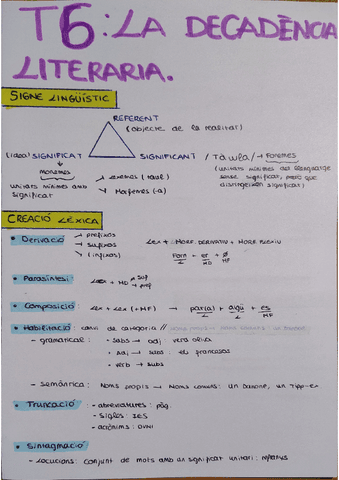 T6: LA DECADÈNCIA
LITERARIA.
SIGNE LINGÜÍSTIC
REFERENT
(objecte de la realitat)
(idea) SIGNIFICAT
SIGNIFICANT / Taula / → Fonemes
monemes
(unitats mínimes del llenguatge
unitats mínimes amb
significat
Lexemes (taul)
Morfemes (-a)
sense significat, però que
distingeixen significat)
CREACIÓ LÈXICA
• Derivació
prefixos
sufixos
(infixos)
Lex + MORF. DERIVATIU + MORF FLEXIU
Forn - er + Ø
L MD MF
• Parasíntesi: Lex + MD
suf
pref
• Composició: Lex + Lex (+MF) → parlal + aigü + es
L L MF
• Habilitació: canvi de categoria //
- gramatical: - subs → adj verd oliva
- adj → subs: els francesos
- verb → subs
- semàntica: Noms propis → Noms comuns: un danone, un tipp-ex
• Truncació: - abreviatures: pàg.
- sigles: IES
- acrònims: OVNI
• Sintagmació
- Locucions: conjunt de mots amb un significat unitari: